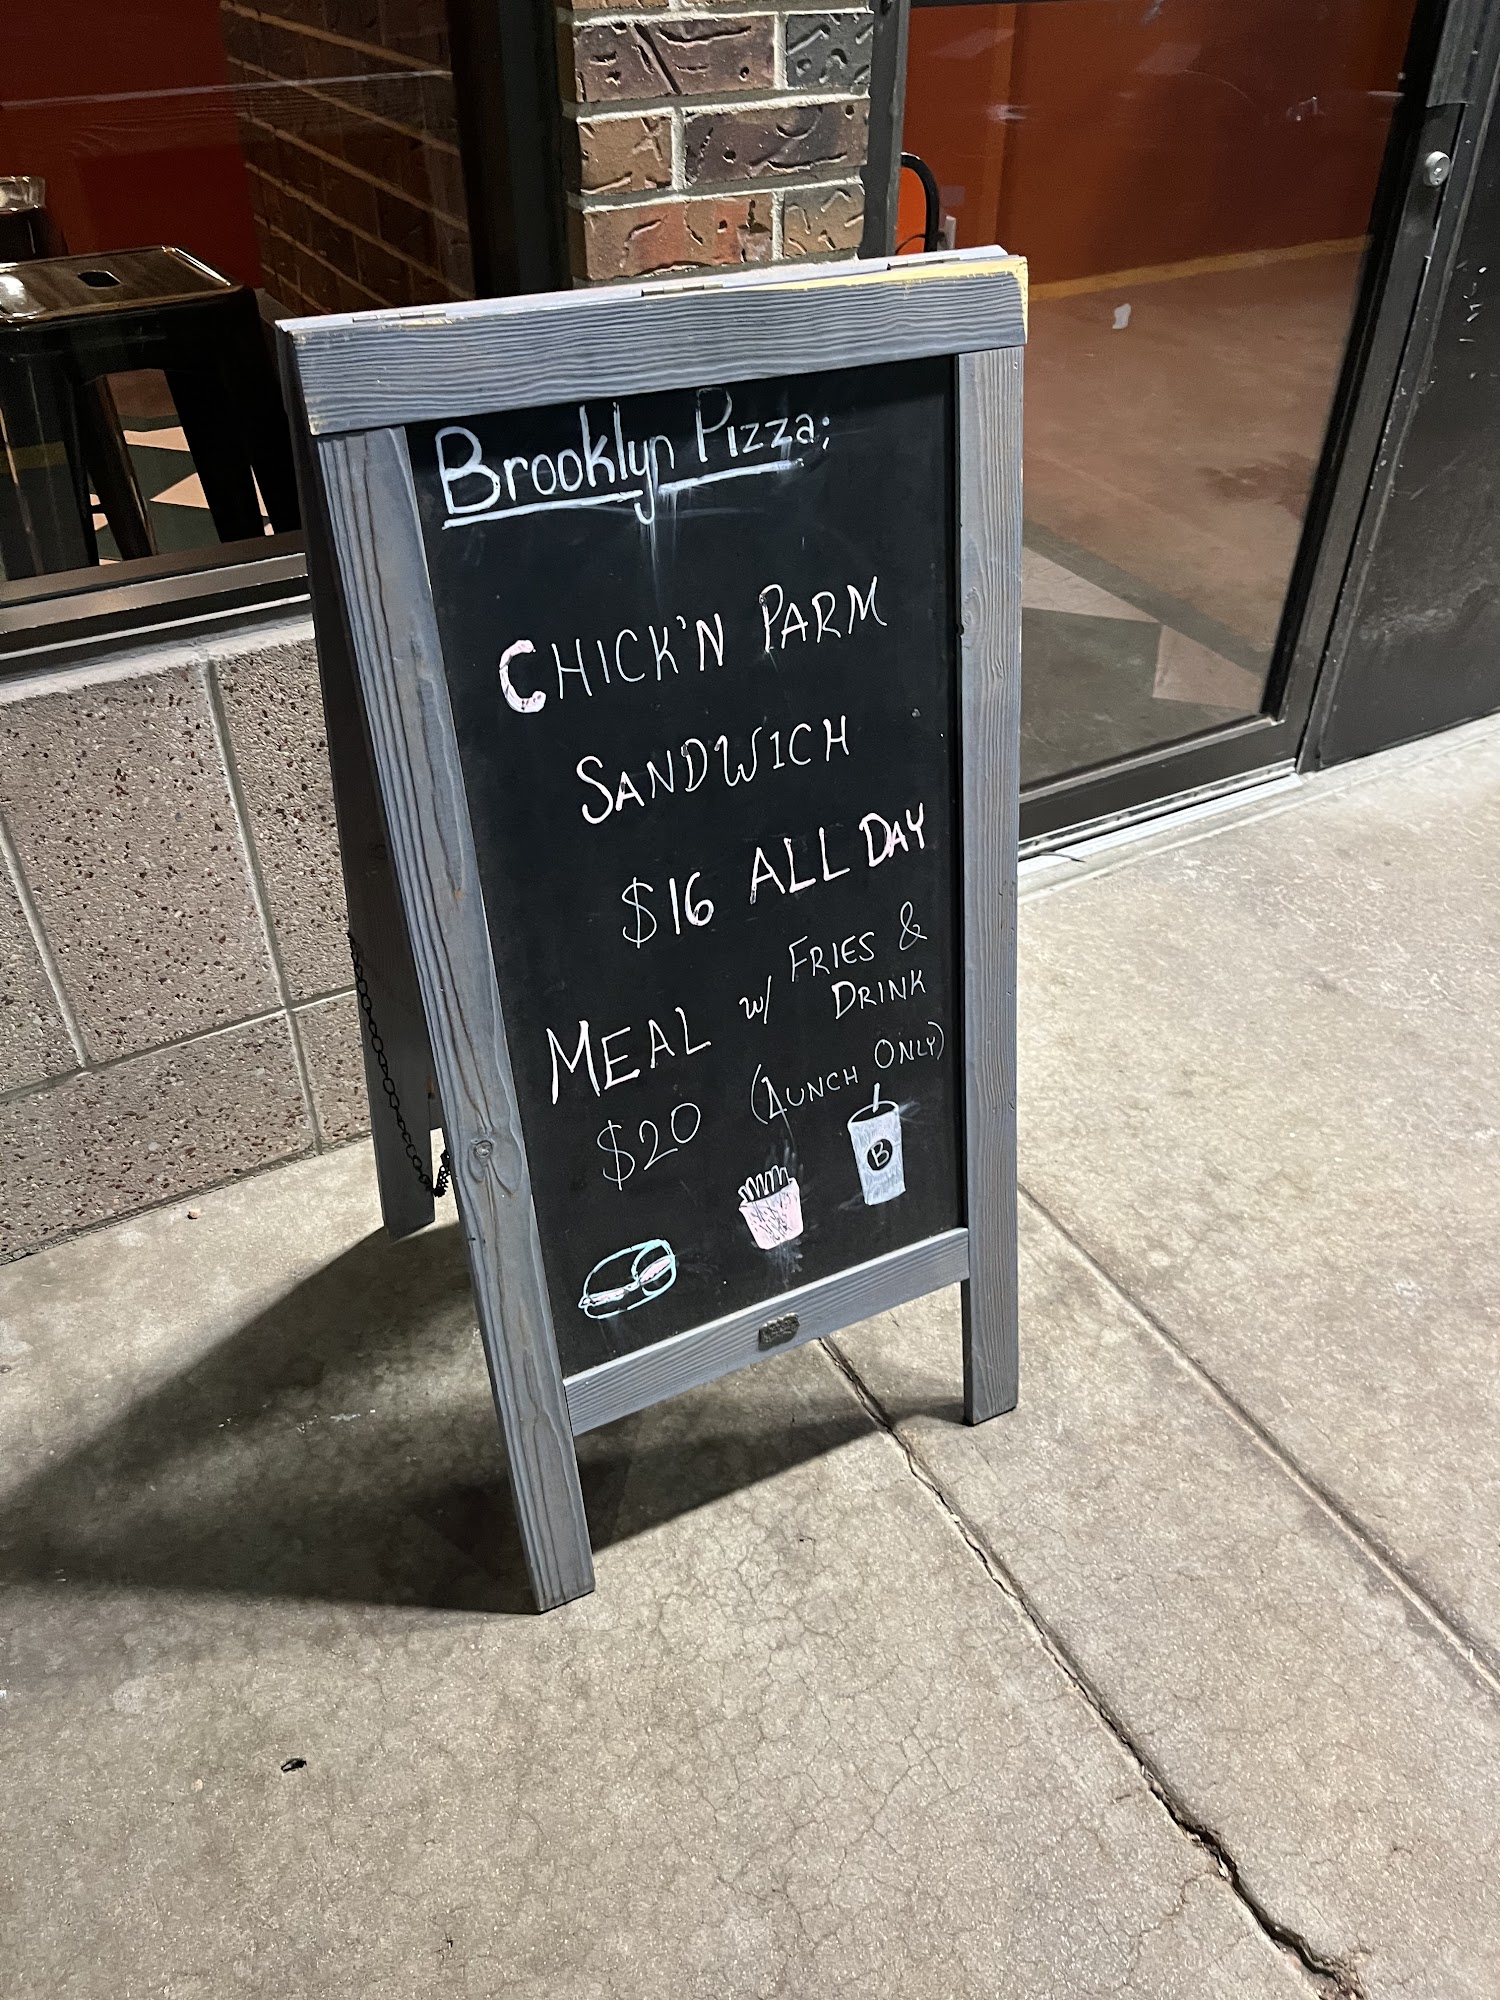 Brooklyn Pizza:
CHICK'N PARM
SANDWICH
$16 ALL DAY
MEAL w/ FRIES &
DRINK
$20 (LUNCH ONLY)
B